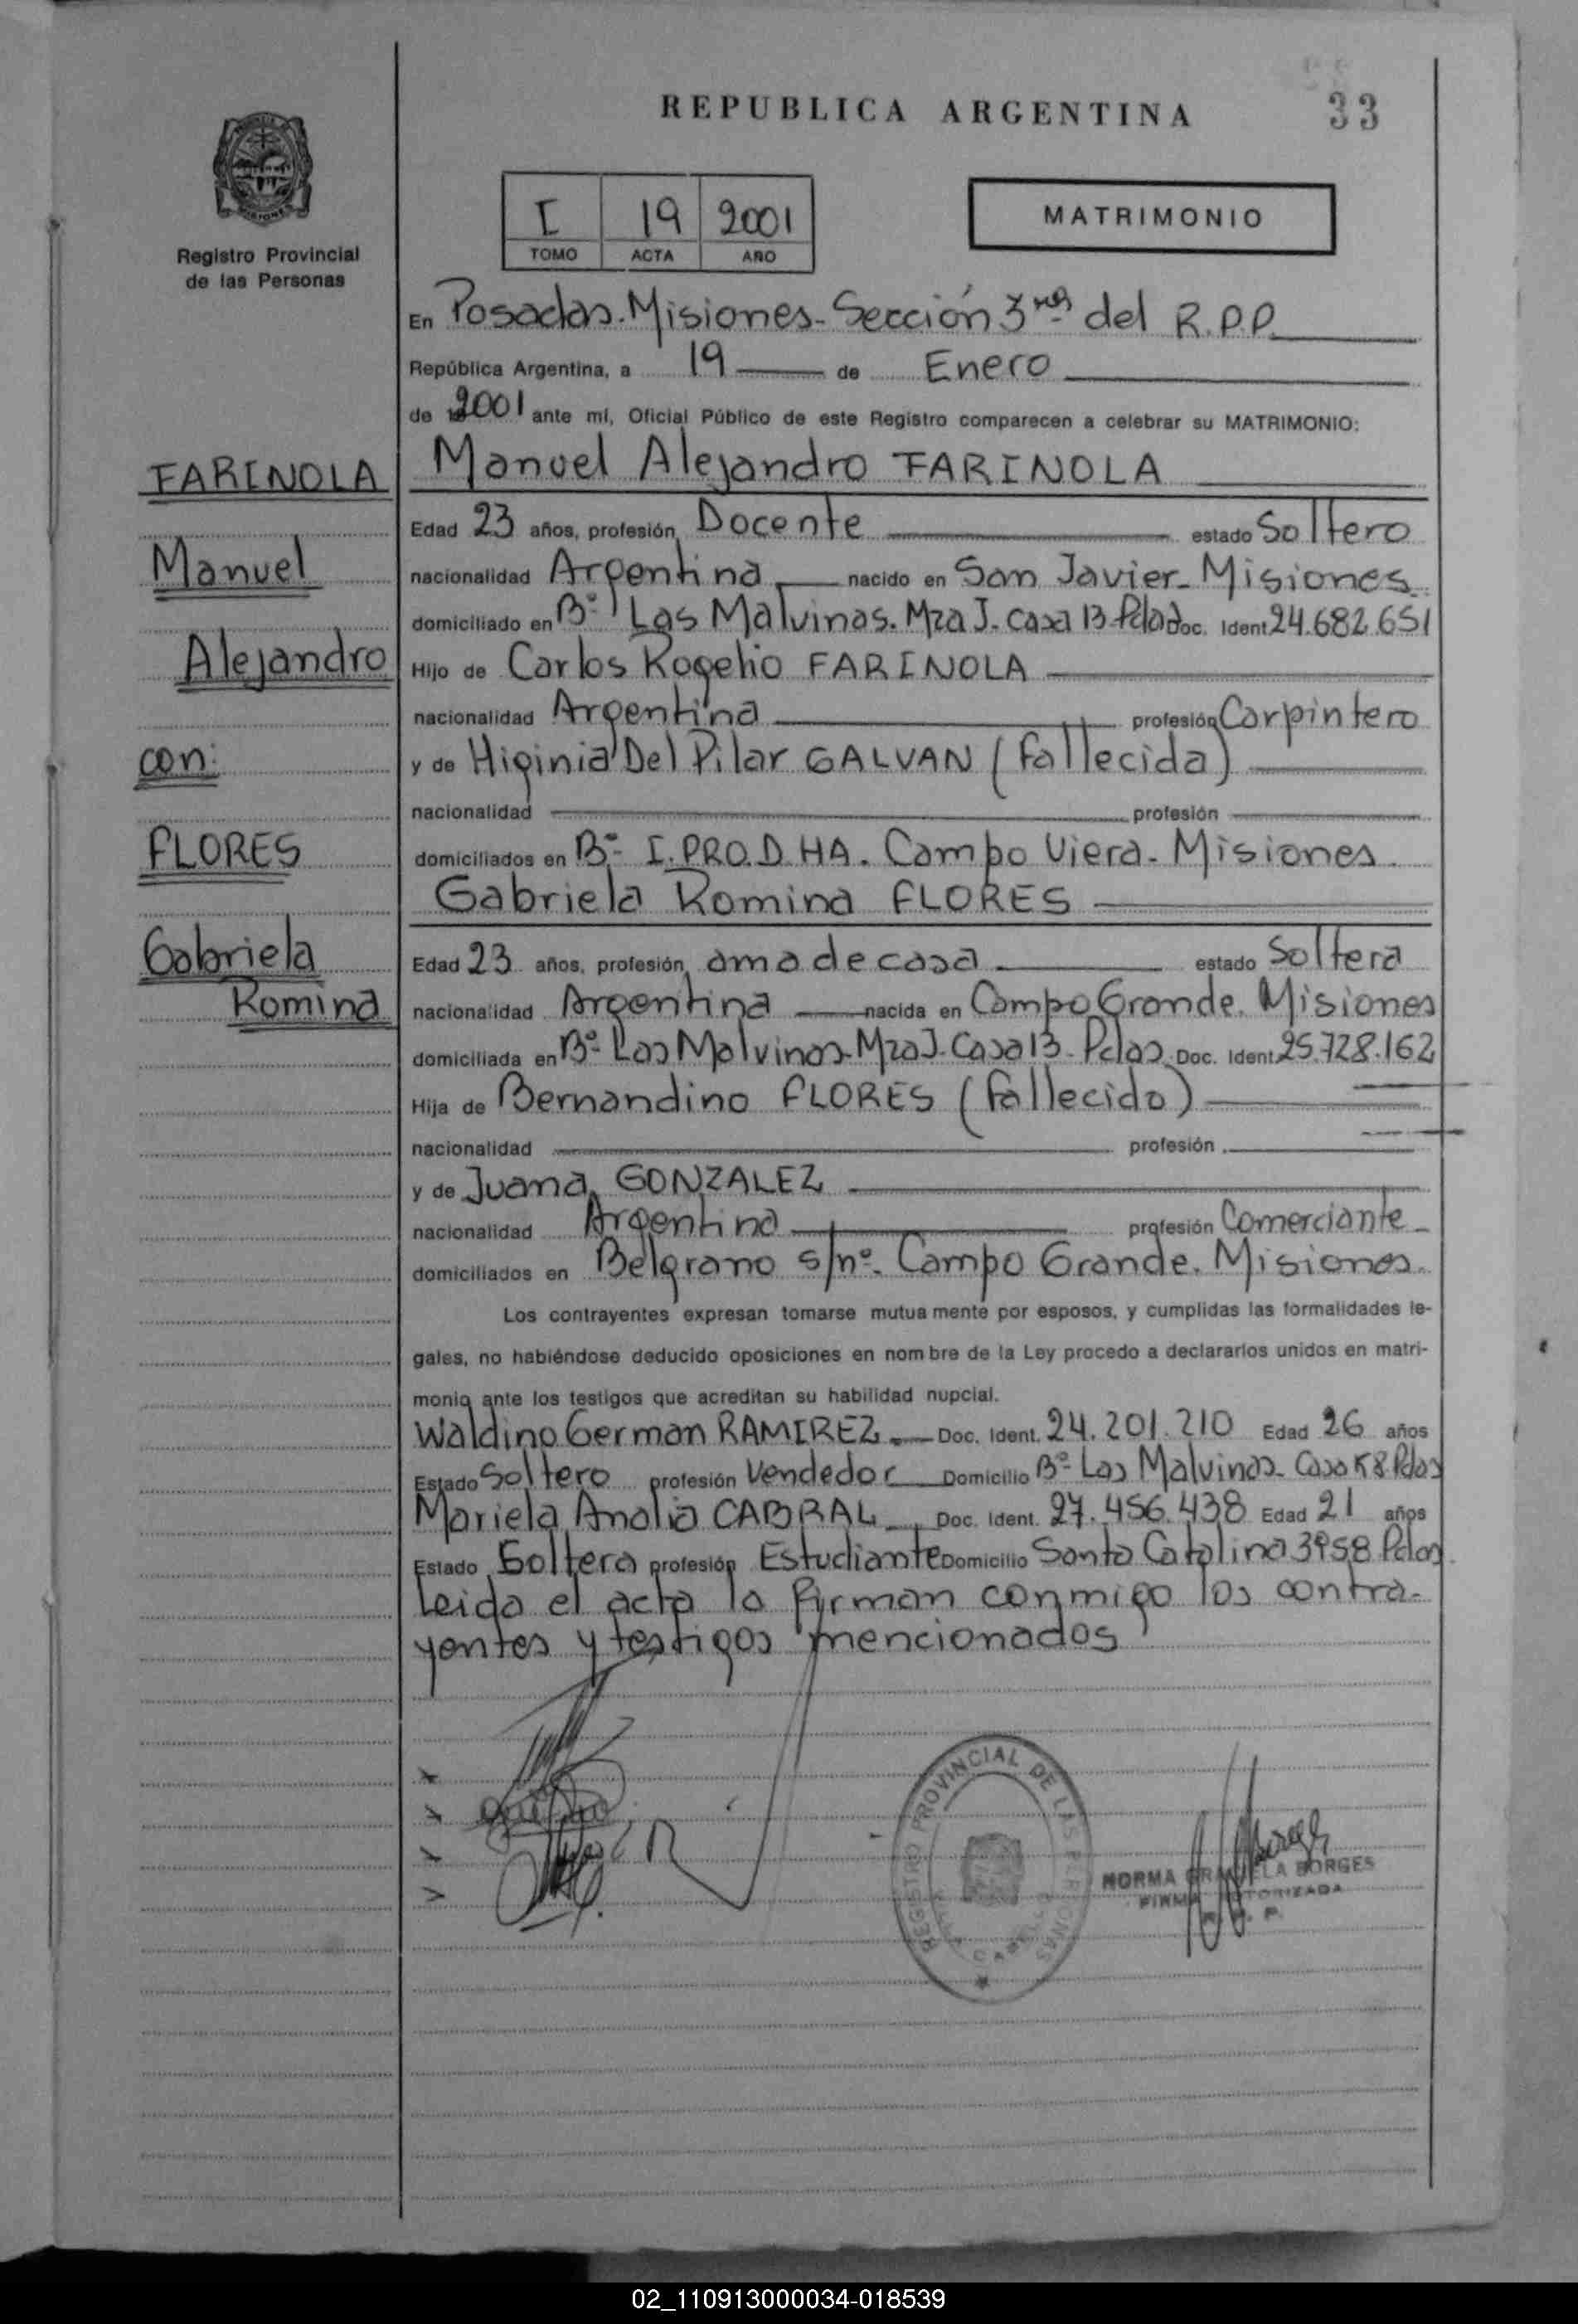 REPUBLICA ARGENTINA
33
Registro Provincial
de las Personas
I 19 2001
TOMO ACTA AÑO
MATRIMONIO
En Posadas. Misiones. Sección 3ra del R.P.P.
República Argentina, a 19 de Enero
de 2001 ante mí, Oficial Público de este Registro comparecen a celebrar su MATRIMONIO:
FARINOLA
Manuel
Alejandro
con:
FLORES
Gabriela
Romina
Manuel Alejandro FARINOLA
Edad 23 años, profesión Docente estado Soltero
nacionalidad Argentina nacido en San Javier - Misiones
domiciliado en Bº Las Malvinas. Mza J. casa 13 Pdas Doc. Ident 24.682.651
Hijo de Carlos Rogelio FARINOLA
nacionalidad Argentina profesión Carpintero
y de Higinia Del Pilar GALVAN (fallecida)
nacionalidad profesión
domiciliados en Bº I.PRO.D.HA. Campo Viera - Misiones
Gabriela Romina FLORES
Edad 23 años, profesión ama de casa estado Soltera
nacionalidad Argentina nacida en Campo Grande. Misiones
domiciliada en Bº Las Malvinas. Mza J. Casa 13 - Pdas. Doc. Ident 25.728.162
Hija de Bernandino FLORES (fallecido)
nacionalidad profesión
y de Juana GONZALEZ
nacionalidad Argentina profesión Comerciante
domiciliados en Belgrano s/nº. Campo Grande. Misiones.
Los contrayentes expresan tomarse mutuamente por esposos, y cumplidas las formalidades le-
gales, no habiéndose deducido oposiciones en nombre de la Ley procedo a declararlos unidos en matri-
monio ante los testigos que acreditan su habilidad nupcial.
Waldino German RAMIREZ Doc. Ident. 24.201.210 Edad 26 años
Estado Soltero profesión Vendedor Domicilio Bº Las Malvinas - Casa K8 Pdas
Mariela Analia CABRAL Doc. Ident. 27.456.438 Edad 21 años
Estado Soltera profesión Estudiante Domicilio Santa Catalina 3958 Pdas
Leida el acta la firman conmigo los contra-
yentes y testigos mencionados
REGISTRO PROVINCIAL DE LAS PERSONAS
NORMA GRACIELA BORGES
FIRMA AUTORIZADA
02_110913000034-018539